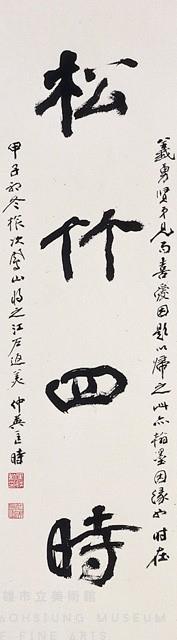 松竹四時
義勇賢弟見而喜愛因題以歸之此亦翰墨因緣也時在
甲子初冬於次鳳山將之江左返美 仲英在時
雄市立美術館
AOHSIUNG MUSEUM
F FINE ARTS